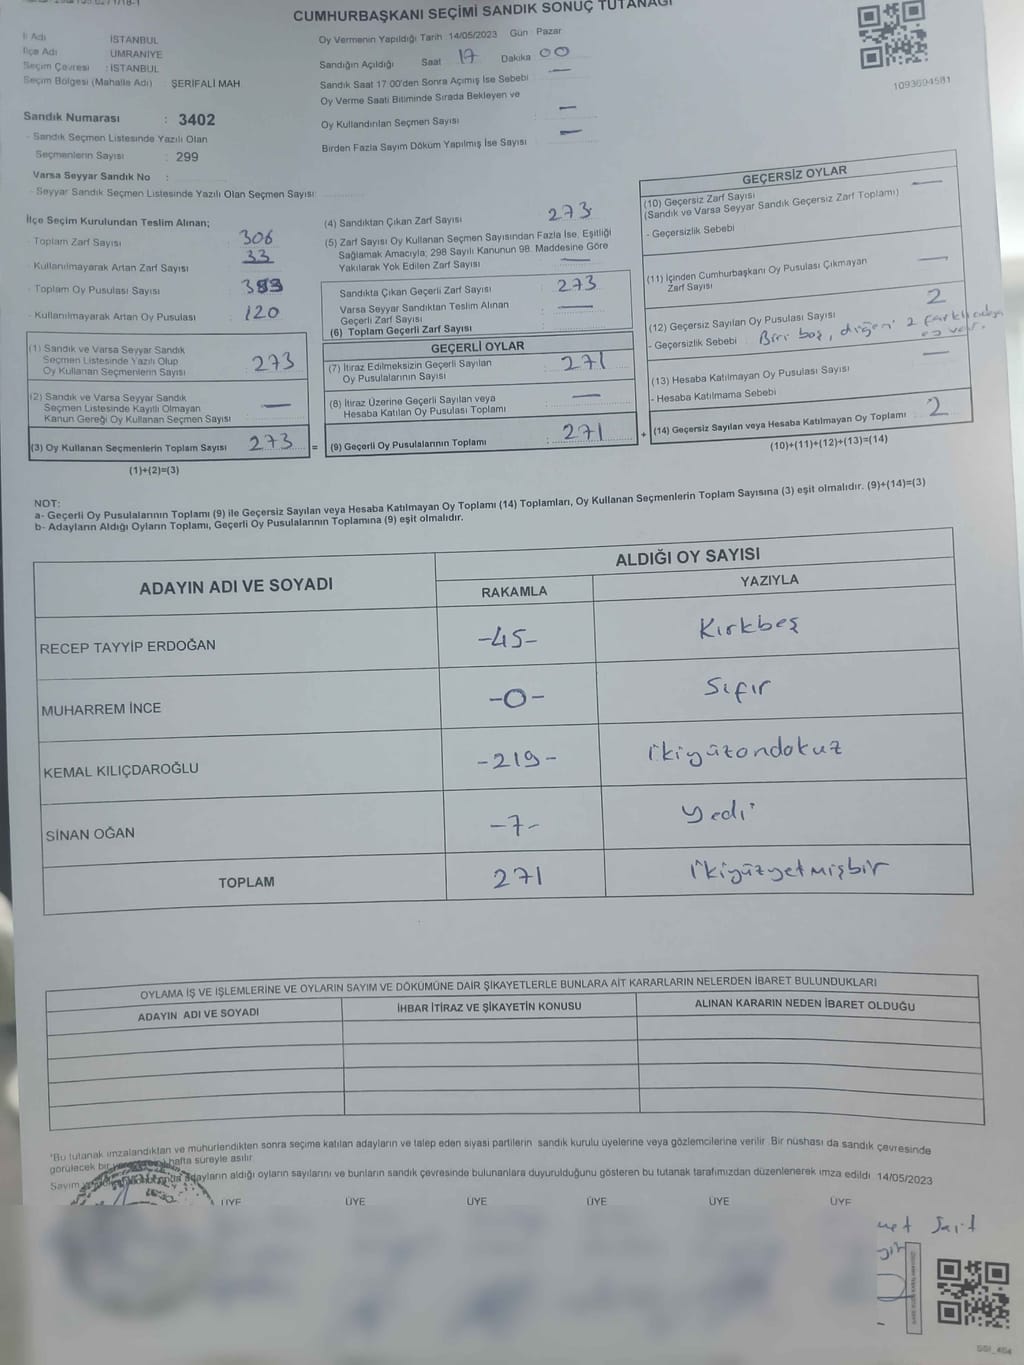 CUMHURBAŞKANI SEÇİMİ SANDIK SONUÇ TUTANAĞI
İl Adı : İSTANBUL
İlçe Adı : ÜMRANİYE
Seçim Çevresi : İSTANBUL
Seçim Bölgesi (Mahalle Adı) : ŞERİFALİ MAH
Oy Vermenin Yapıldığı Tarih : 14/05/2023 Gün Pazar
Sandığın Açıldığı Saat 17 Dakika 00
Sandık Saat 17:00'den Sonra Açılmış İse Sebebi —
Oy Verme Saati Bitiminde Sırada Bekleyen ve
Oy Kullandırılan Seçmen Sayısı —
Birden Fazla Sayım Döküm Yapılmış İse Sayısı —
1093694581
Sandık Numarası : 3402
- Sandık Seçmen Listesinde Yazılı Olan
Seçmenlerin Sayısı : 299
Varsa Seyyar Sandık No :
- Seyyar Sandık Seçmen Listesinde Yazılı Olan Seçmen Sayısı:
İlçe Seçim Kurulundan Teslim Alınan;
- Toplam Zarf Sayısı : 306
- Kullanılmayarak Artan Zarf Sayısı : 33
- Toplam Oy Pusulası Sayısı : 393
- Kullanılmayarak Artan Oy Pusulası : 120
(1) Sandık ve Varsa Seyyar Sandık
Seçmen Listesinde Yazılı Olup
Oy Kullanan Seçmenlerin Sayısı : 273
(2) Sandık ve Varsa Seyyar Sandık
Seçmen Listesinde Kayıtlı Olmayan
Kanun Gereği Oy Kullanan Seçmen Sayısı : —
(3) Oy Kullanan Seçmenlerin Toplam Sayısı : 273 =
(1)+(2)=(3)
(4) Sandıktan Çıkan Zarf Sayısı : 273
(5) Zarf Sayısı Oy Kullanan Seçmen Sayısından Fazla İse, Eşitliği
Sağlamak Amacıyla; 298 Sayılı Kanunun 98. Maddesine Göre
Yakılarak Yok Edilen Zarf Sayısı : —
Sandıkta Çıkan Geçerli Zarf Sayısı : 273
Varsa Seyyar Sandıktan Teslim Alınan
Geçerli Zarf Sayısı : —
(6) Toplam Geçerli Zarf Sayısı :
GEÇERLİ OYLAR
(7) İtiraz Edilmeksizin Geçerli Sayılan
Oy Pusulalarının Sayısı : 271
(8) İtiraz Üzerine Geçerli Sayılan veya
Hesaba Katılan Oy Pusulası Toplamı : —
(9) Geçerli Oy Pusulalarının Toplamı : 271 +
GEÇERSİZ OYLAR
(10) Geçersiz Zarf Sayısı —
(Sandık ve Varsa Seyyar Sandık Geçersiz Zarf Toplamı)
- Geçersizlik Sebebi
(11) İçinden Cumhurbaşkanı Oy Pusulası Çıkmayan
Zarf Sayısı —
(12) Geçersiz Sayılan Oy Pusulası Sayısı 2
- Geçersizlik Sebebi : Biri boş, diğeri 2 farklı adaya
oy var.
(13) Hesaba Katılmayan Oy Pusulası Sayısı —
- Hesaba Katılmama Sebebi
(14) Geçersiz Sayılan veya Hesaba Katılmayan Oy Toplamı : 2
(10)+(11)+(12)+(13)=(14)
NOT:
a- Geçerli Oy Pusulalarının Toplamı (9) ile Geçersiz Sayılan veya Hesaba Katılmayan Oy Toplamı (14) Toplamları, Oy Kullanan Seçmenlerin Toplam Sayısına (3) eşit olmalıdır. (9)+(14)=(3)
b- Adayların Aldığı Oyların Toplamı, Geçerli Oy Pusulalarının Toplamına (9) eşit olmalıdır.
ADAYIN ADI VE SOYADI ALDIĞI OY SAYISI
RAKAMLA YAZIYLA
RECEP TAYYİP ERDOĞAN -45- Kırkbeş
MUHARREM İNCE -0- Sıfır
KEMAL KILIÇDAROĞLU -219- İkiyüzondokuz
SİNAN OĞAN -7- Yedi
TOPLAM 271 İkiyüzyetmişbir
OYLAMA İŞ VE İŞLEMLERİNE VE OYLARIN SAYIM VE DÖKÜMÜNE DAİR ŞİKAYETLERLE BUNLARA AİT KARARLARIN NELERDEN İBARET BULUNDUKLARI
ADAYIN ADI VE SOYADI İHBAR İTİRAZ VE ŞİKAYETİN KONUSU ALINAN KARARIN NEDEN İBARET OLDUĞU
*Bu tutanak imzalandıktan ve mühürlendikten sonra seçime katılan adayların ve talep eden siyasi partilerin sandık kurulu üyelerine veya gözlemcilerine verilir. Bir nüshası da sandık çevresinde
görülecek bir hafta süreyle asılır.
Sayım adayların aldığı oyların sayılarını ve bunların sandık çevresinde bulunanlara duyurulduğunu gösteren bu tutanak tarafımızdan düzenlenerek imza edildi 14/05/2023
ÜYE ÜYE ÜYE ÜYE ÜYE ÜYE
Sait